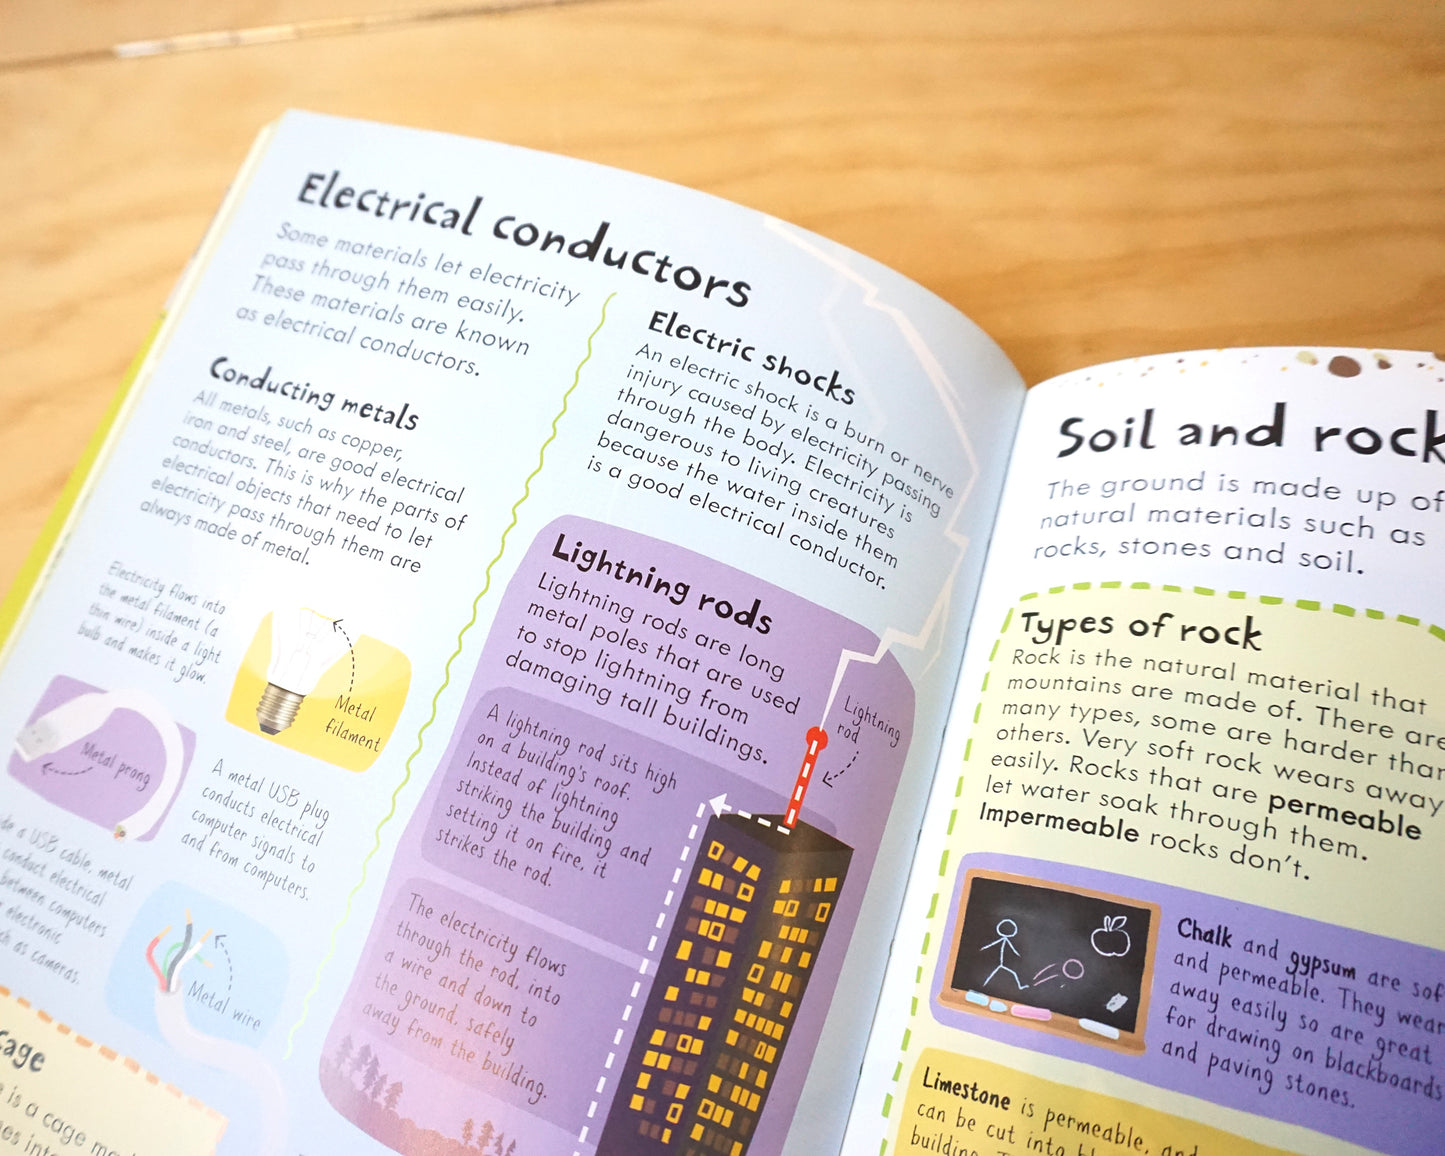 Electrical conductors
Some materials let electricity
pass through them easily.
These materials are known
as electrical conductors.
Conducting metals
All metals, such as copper,
iron and steel, are good electrical
conductors. This is why the parts of
electrical objects that need to let
electricity pass through them are
always made of metal.
Electricity flows into
the metal filament (a
thin wire) inside a light
bulb and makes it glow.
Metal
filament
Metal prong
A metal USB plug
conducts electrical
computer signals to
and from computers.
a USB cable, metal
conduct electrical
between computers
electronic
as cameras.
Metal wire
is a cage
Electric shocks
An electric shock is a burn or nerve
injury caused by electricity passing
through the body. Electricity is
dangerous to living creatures
because the water inside them
is a good electrical conductor.
Lightning rods
Lightning rods are long
metal poles that are used
to stop lightning from
damaging tall buildings.
Lightning
rod
A lightning rod sits high
on a building's roof.
Instead of lightning
striking the building and
setting it on fire, it
strikes the rod.
The electricity flows
through the rod, into
a wire and down to
the ground, safely
away from the building.
Soil and rock
The ground is made up of
natural materials such as
rocks, stones and soil.
Types of rock
Rock is the natural material that
mountains are made of. There are
many types, some are harder than
others. Very soft rock wears away
easily. Rocks that are permeable
let water soak through them.
Impermeable rocks don't.
Chalk and gypsum are
and permeable. They
away easily so are great
for drawing on blackboards
and paving stones.
Limestone is permeable,
can be cut into
building.